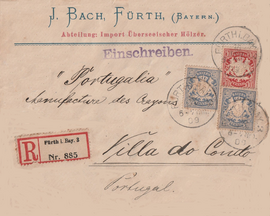 J. BACH, FÜRTH, (BAYERN.)
Abteilung: Import Überseeischer Hölzer.
Einschreiben.
"Portugalia"
Manufacture des Crayons
R Fürth i. Bay. 2
Nr. 885
Villa do Conde
Portugal.